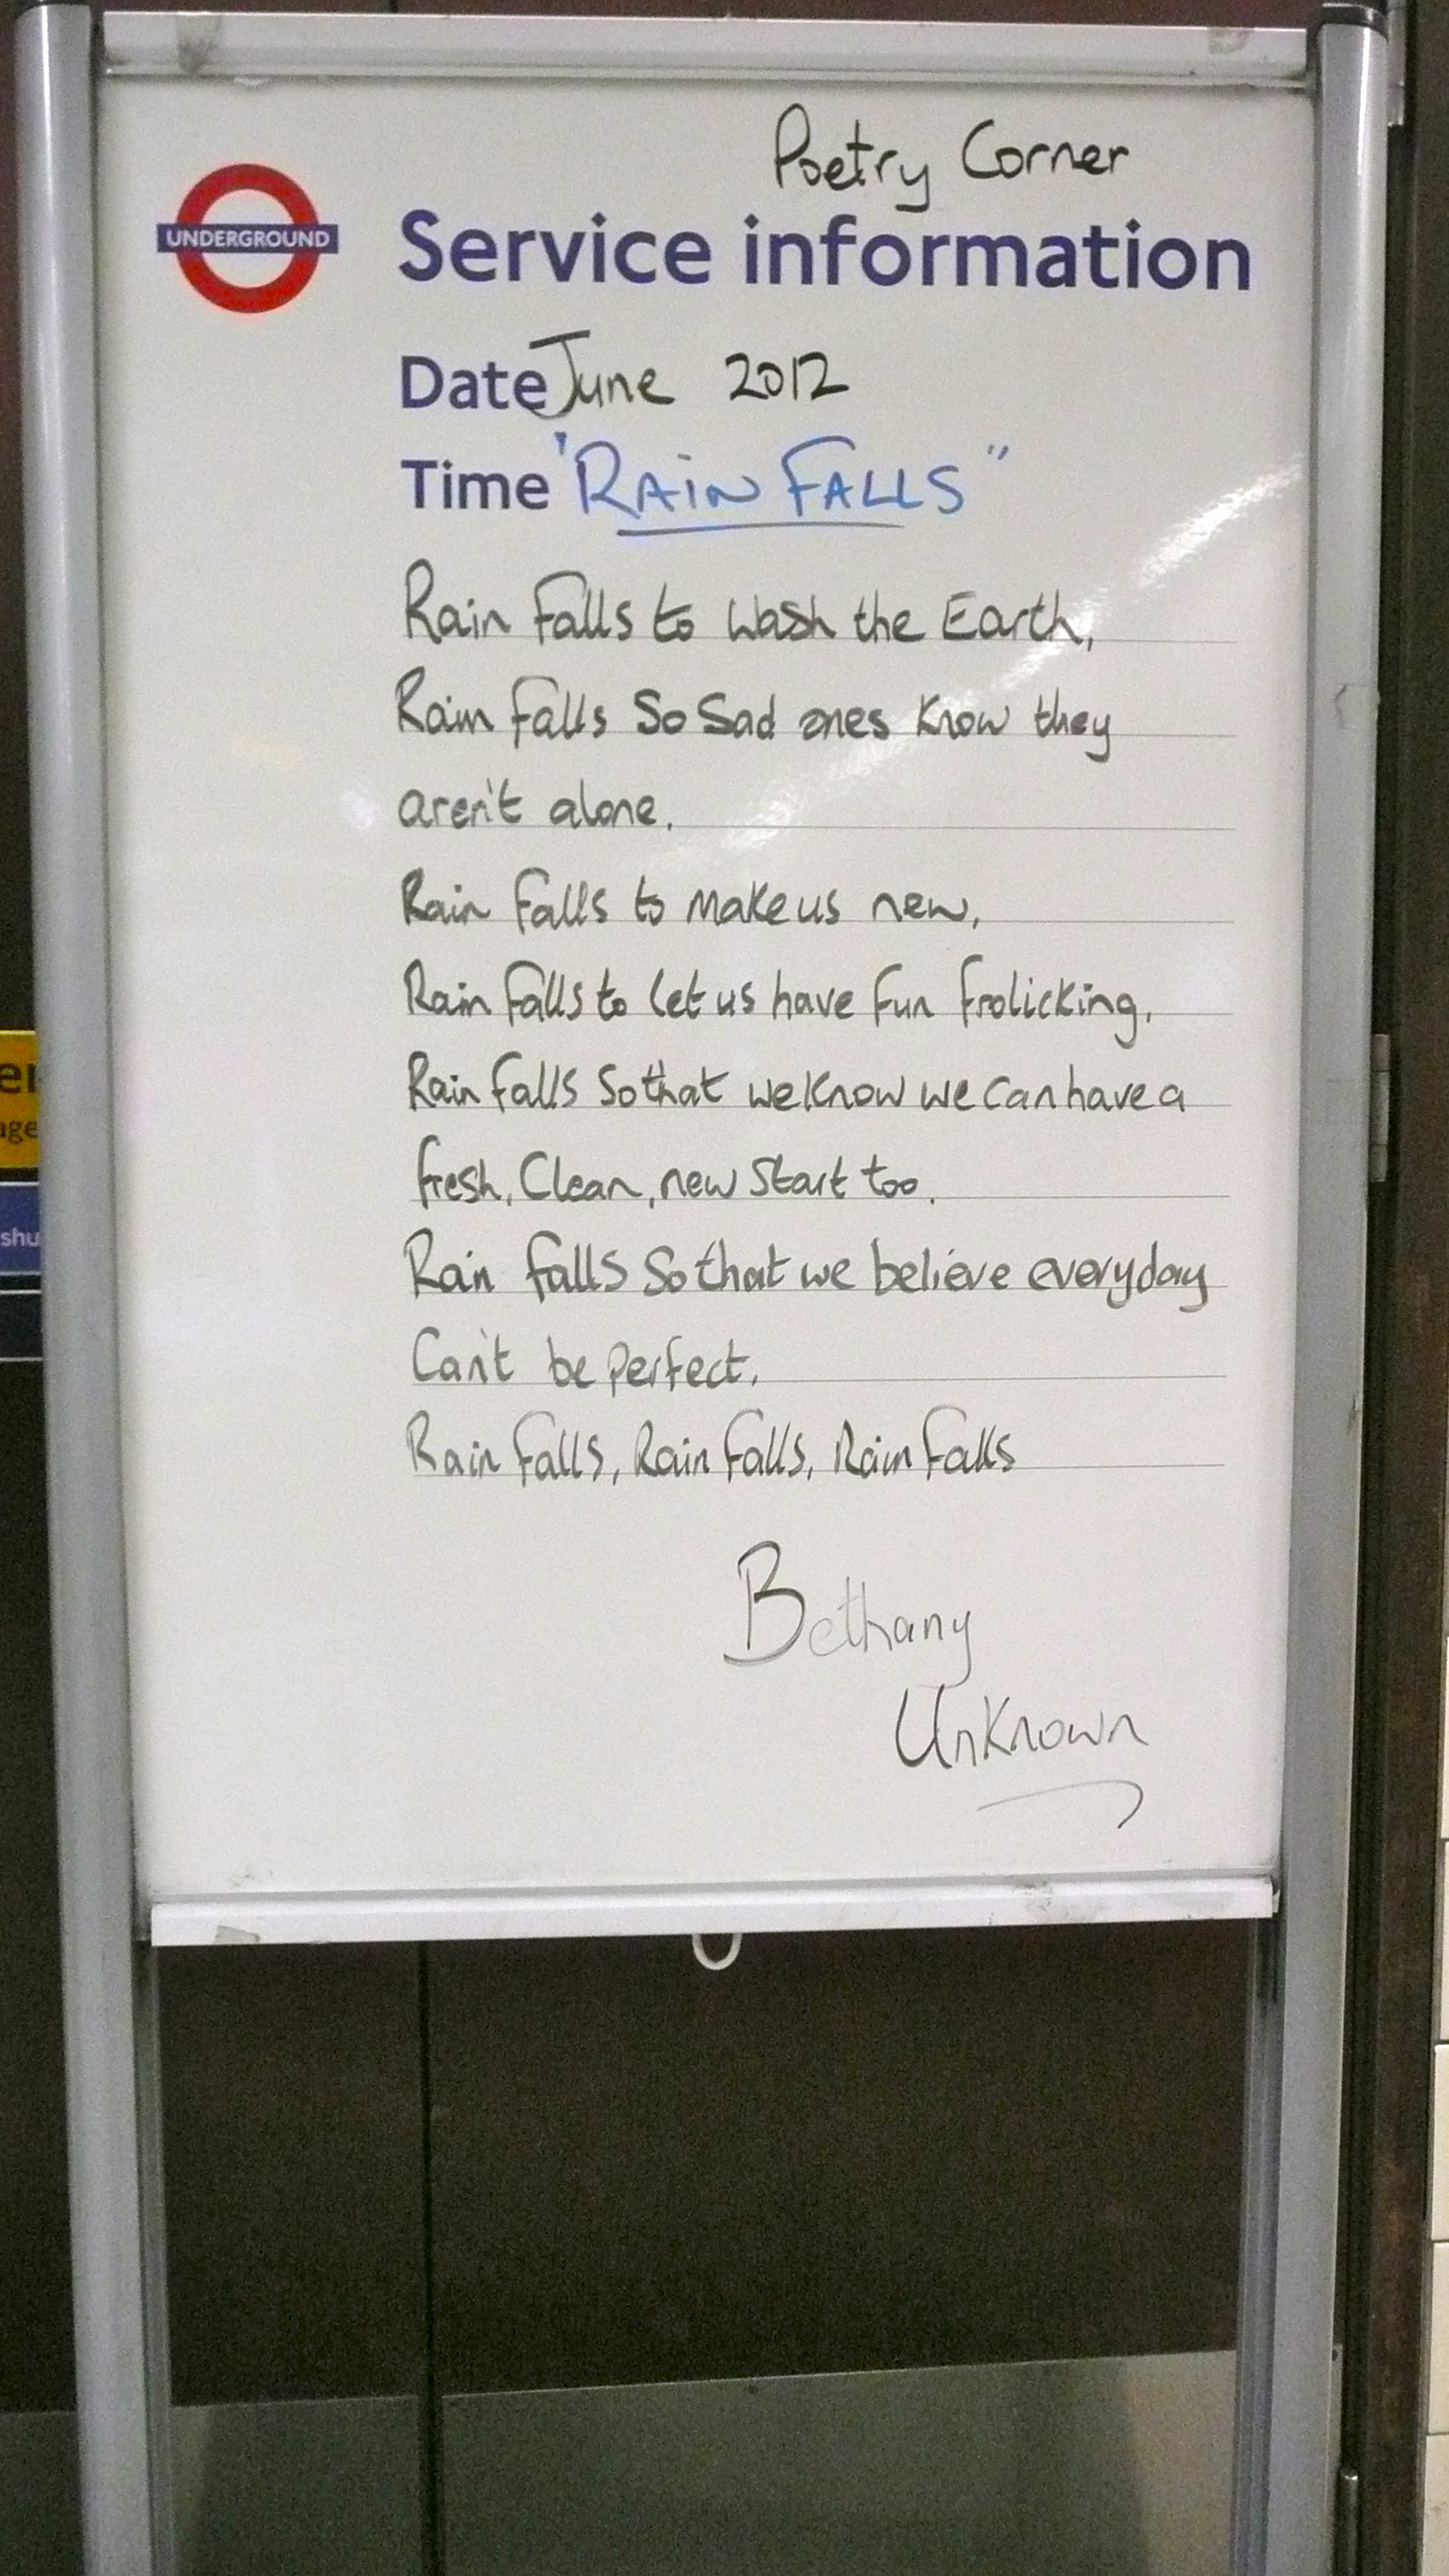 Poetry Corner
UNDERGROUND
Service information
Date June 2012
Time "RAIN FALLS"
Rain Falls to Wash the Earth,
Rain Falls So Sad ones Know they
aren't alone.
Rain Falls to Make us new,
Rain Falls to let us have Fun Frolicking,
Rain Falls So that we Know we Can have a
fresh, Clean, new Start too.
Rain Falls So that we believe everyday
Can't be Perfect.
Rain Falls, Rain Falls, Rain Falls
Bethany
Unknown
er
age
shu